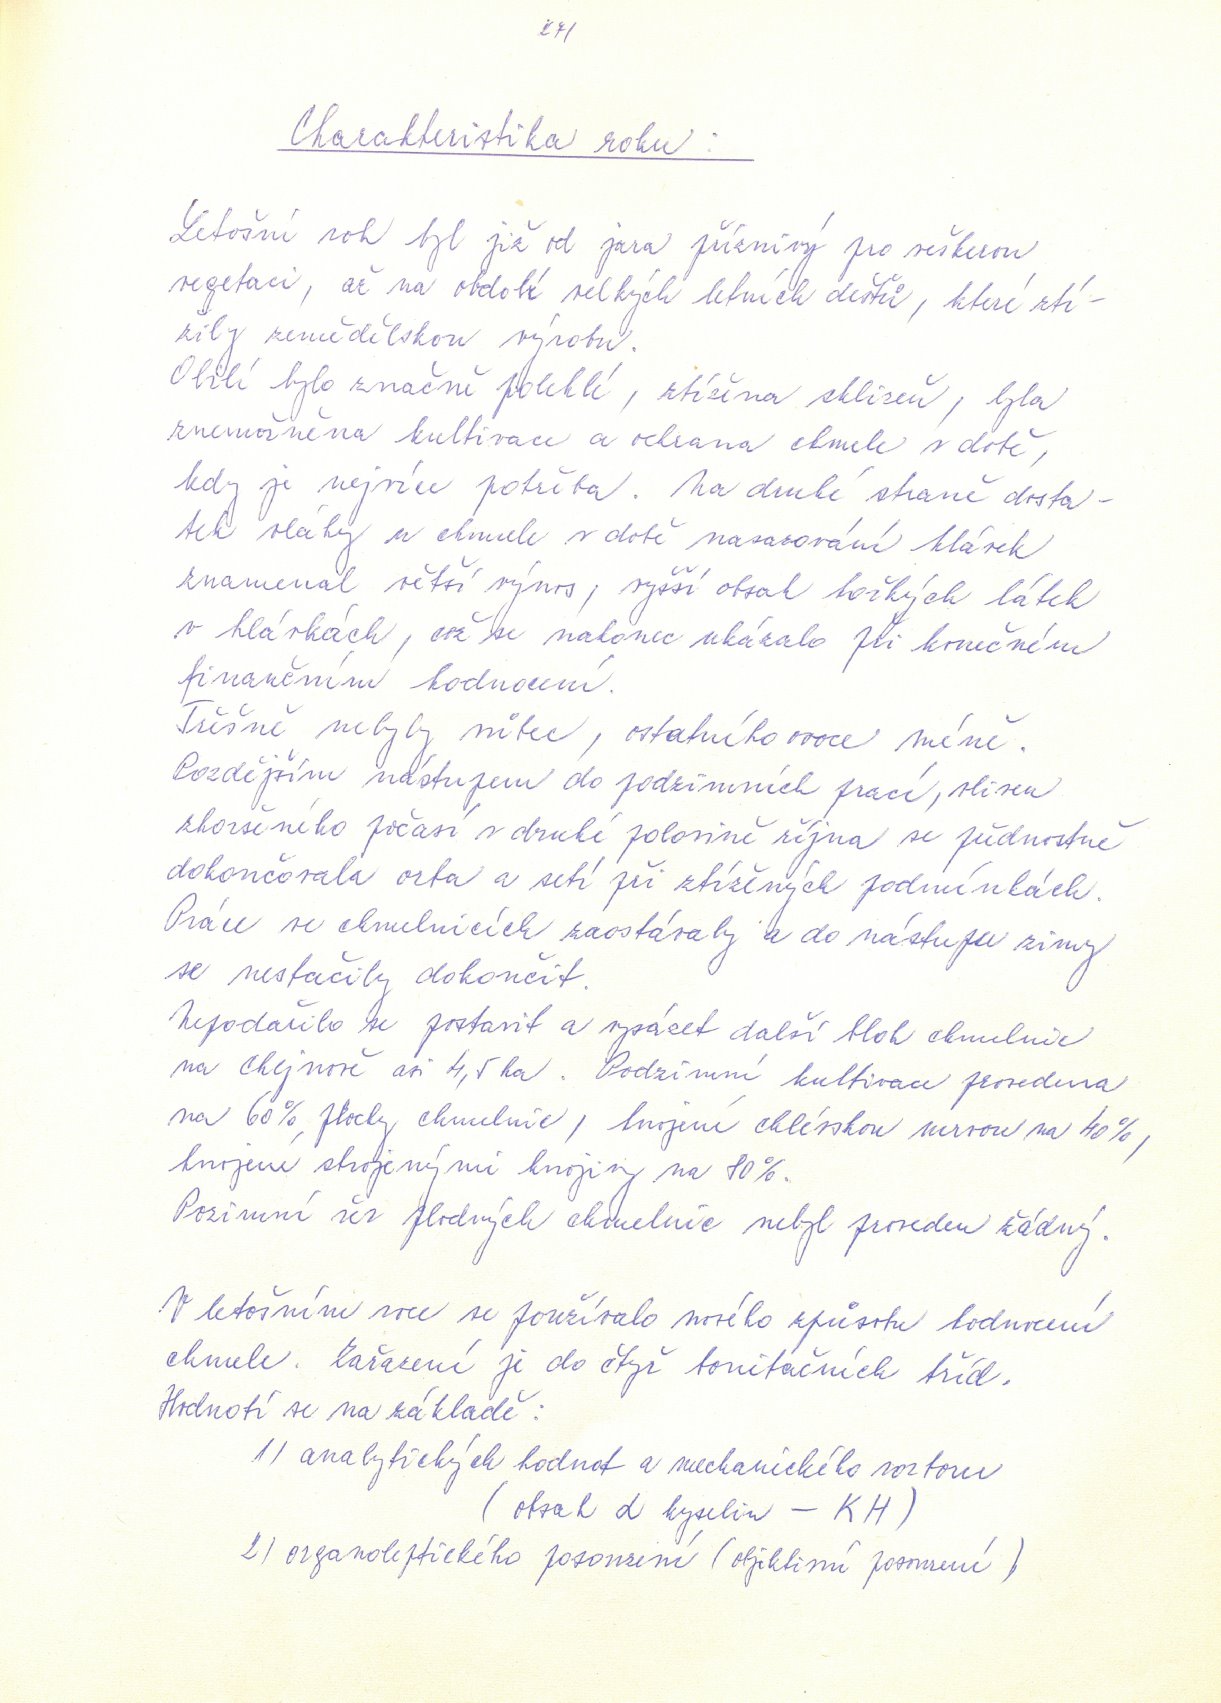 271
Charakteristika roku :
Letošní rok byl již od jara příznivý pro veškerou
vegetaci, až na období velkých letních dešťů, které ztí-
žily zemědělskou výrobu.
Obilí bylo značně polehlé, ztížena sklizeň, byla
znemožněna kultivace a ochrana chmele v době,
kdy je nejvíce potřeba. Na druhé straně dosta-
tek vláhy u chmele v době nasazování hlávek
znamenal větší výnos, vyšší obsah hořkých látek
v hlávkách, což se nakonec ukázalo při konečném
finančním hodnocení.
Třešně nebyly vůbec, ostatního ovoce méně.
Pozdějším nástupem do podzimních prací, vlivem
zhoršeného počasí v druhé polovině října se přednostně
dokončovala orba a setí při ztížených podmínkách.
Práce ve chmelnicích zaostávaly a do nástupu zimy
se nestačily dokončit.
Nepodařilo se postavit a vysázet další blok chmelnic
na Chejnově asi 4,5 ha. Podzimní kultivace provedena
na 60% plochy chmelnic, hnojení chlévskou mrvou na 40%,
hnojení strojenými hnojivy na 80%.
Pozimní řez plodných chmelnic nebyl proveden žádný.
V letošním roce se používalo nového způsobu hodnocení
chmele. Zařazení je do čtyř bonitačních tříd.
Hodnotí se na základě :
1) analytických hodnot a mechanického rozboru
(obsah α kyselin – KH)
2) organoleptického posouzení (objektivní posouzení)